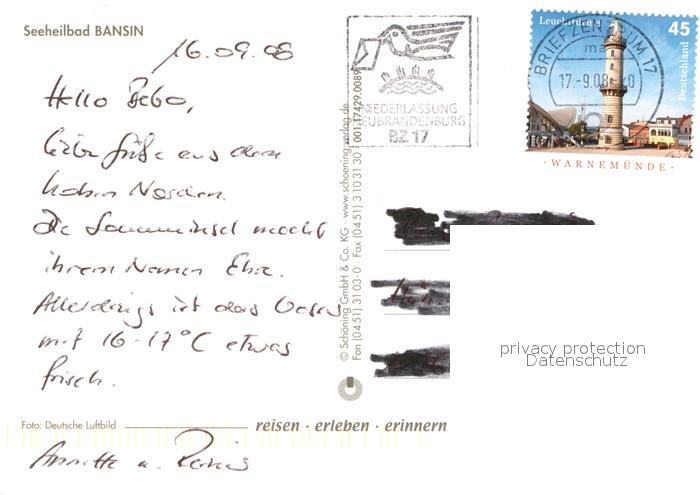 Seeheilbad BANSIN
16.09.08
Hallo Bebo,
liebe Grüße aus dem
hohen Norden.
Die Sonneninsel macht
ihrem Namen Ehre.
Allerdings ist das Wasser
mit 16-17°C etwas
frisch.
Foto: Deutsche Luftbild
reisen · erleben · erinnern
Annette u.
© Schöning GmbH & Co. KG · www.schoening-verlag.de
Fon (0451) 31 03-0 Fax (0451) 3 10 31 30 001.17429.0089
NIEDERLASSUNG
NEUBRANDENBURG
BZ 17
BRIEFZENTRUM 17
ma
17.-9.08-20
Leuchttürme
45
Deutschland
· WARNEMÜNDE ·
privacy protection
Datenschutz